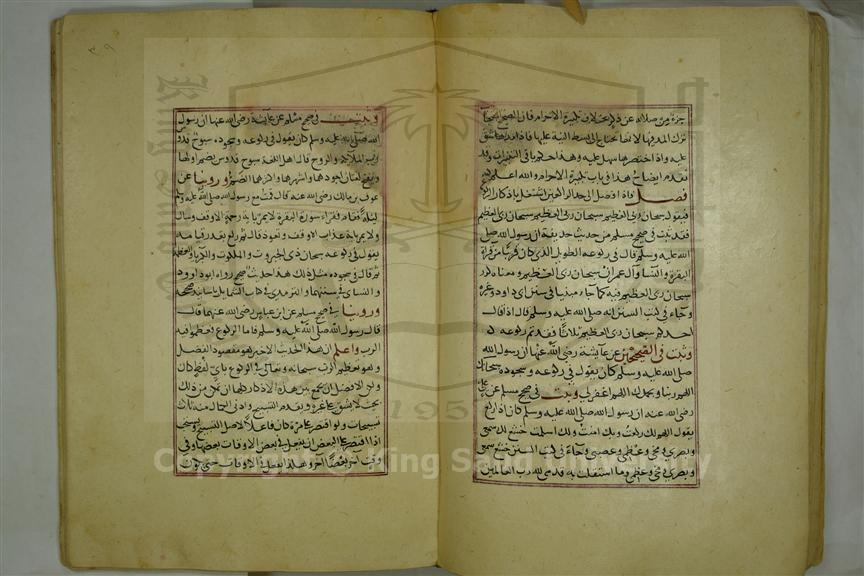 جزء من صلاته عن ذلك بخلاف تكبيرة الاحرام فان الصحيح استحباب
ترك المد فيها لانه يحتاج الى بسط النية عليها فاذا مدها شق
عليه واذا اختصرها سهل عليه وهذا حكم باقي التكبيرات وقد
تقدم ايضاح هذا في باب تكبيرة الاحرام والله اعلم
فصل فاذا وصل الى حد الراكعين اشتغل باذكار الركوع
فيقول سبحان ربي العظيم سبحان ربي العظيم سبحان ربي العظيم
فقد ثبت في صحيح مسلم من حديث حذيفة ان رسول الله صلى
الله عليه وسلم قال في ركوعه الطويل الذي كان قريبا من قراءة
البقرة والنسا وآل عمران سبحان ربي العظيم ومعناه كرر
سبحان ربي العظيم فيه كما جاء مبينا في سنن ابي داود وغيره
وجاء في كتب السنن انه صلى الله عليه وسلم قال اذا قال
احدكم سبحان ربي العظيم ثلاثا فقد تم ركوعه
وثبت في الصحيحين عن عايشة رضي الله عنها ان رسول الله
صلى الله عليه وسلم كان يقول في ركوعه وسجوده سبحانك
اللهم ربنا وبحمدك اللهم اغفر لي وثبت في صحيح مسلم عن علي
رضي الله عنه ان رسول الله صلى الله عليه وسلم كان اذا ركع
يقول اللهم لك ركعت وبك امنت ولك اسلمت خشع لك سمعي
وبصري ومخي وعظمي وعصبي وجاء في كتب السنن خشع سمعي
وبصري ومخي وعظمي وما استقلت به قدمي لله رب العالمين
وثبت في صحيح مسلم عن عايشة رضي الله عنها ان رسول
الله صلى الله عليه وسلم كان يقول في ركوعه وسجوده سبوح قدوس
رب الملايكة والروح قال اهل اللغة سبوح قدوس بضم اولهما
وبفتح لغتان اجودهما واشهرهما واكثرهما الضم وروينا عن
عوف بن مالك رضي الله عنه قال قمت مع رسول الله صلى الله عليه وسلم
ليلة فقام فقراء سورة البقرة لا يمر باية رحمة الا وقف وسال
ولا يمر باية عذاب الا وقف وتعوذ قال ثم ركع بقدر قيامه
يقول في ركوعه سبحان ذي الجبروت والملكوت والكبرياء والعظمة
ثم قال في سجوده مثل ذلك هذا حديث صحيح رواه ابو داوود
والنساي في سننهما والترمذي في كتاب الشمايل باسانيد صحيحة
وروينا في صحيح مسلم عن ابن عباس رضي الله عنهما قال
قال رسول الله صلى الله عليه وسلم فاما الركوع فعظموا فيه
الرب واعلم ان هذا الحديث الاخير هو مقصود الفصل
وهو تعظيم الرب سبحانه وتعالى في الركوع باي لفظ كان
ولكن الافضل ان يجمع بين هذه الاذكار كلها ان تمكن من ذلك
بحيث لا يشق على غيره ويقدم التسبيح وادنى الكمال منه ثلاث
تسبيحات ولو اقتصر على مرة كان فاعلا لاصل التسبيح ويستحب
اذا اقتصر على البعض ان يفعل في بعض الاوقات بعضها وفي
وقت آخر بعضا آخر وهكذا يفعل في الاوقات حتى يكون
1957
Copyright © King Saud University